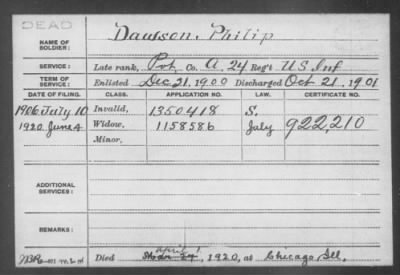 DEAD
NAME OF SOLDIER: Dawson, Philip
SERVICE: Late rank, Pvt, Co. A, 24 Reg't U S Inf
TERM OF SERVICE: Enlisted Dec 21, 1900 Discharged Oct 21, 1901
DATE OF FILING. CLASS. APPLICATION NO. LAW. CERTIFICATE NO.
1906 July 10 Invalid, 1350418 S.
1920 June 4 Widow, 1158586 July 922,210
Minor,
ADDITIONAL SERVICES:
REMARKS:
April 1
Died 1920, at Chicago Ill.